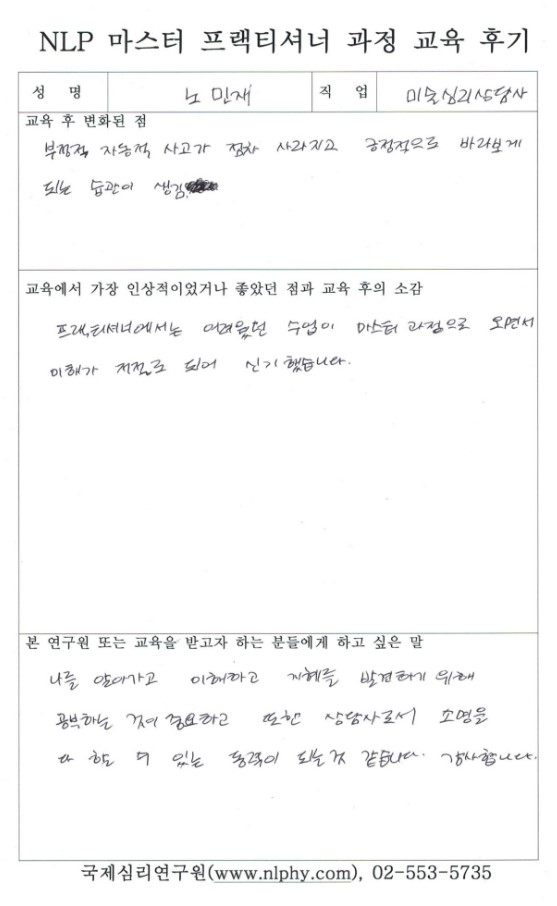 NLP 마스터 프랙티셔너 과정 교육 후기
성 명 노민재 직 업 미술심리상담사
교육 후 변화된 점
부정적 자동적 사고가 점차 사라지고 긍정적으로 바라보게
되는 습관이 생김.
교육에서 가장 인상적이었거나 좋았던 점과 교육 후의 소감
프랙티셔너에서는 어려웠던 수업이 마스터 과정으로 오면서
이해가 저절로 되어 신기했습니다.
본 연구원 또는 교육을 받고자 하는 분들에게 하고 싶은 말
나를 알아가고 이해하고 지혜를 발견하기 위해
공부하는 것이 중요하고 또한 상담사로서 소명을
다 할 수 있는 동력이 되는 것 같습니다. 감사합니다.
국제심리연구원(www.nlphy.com), 02-553-5735